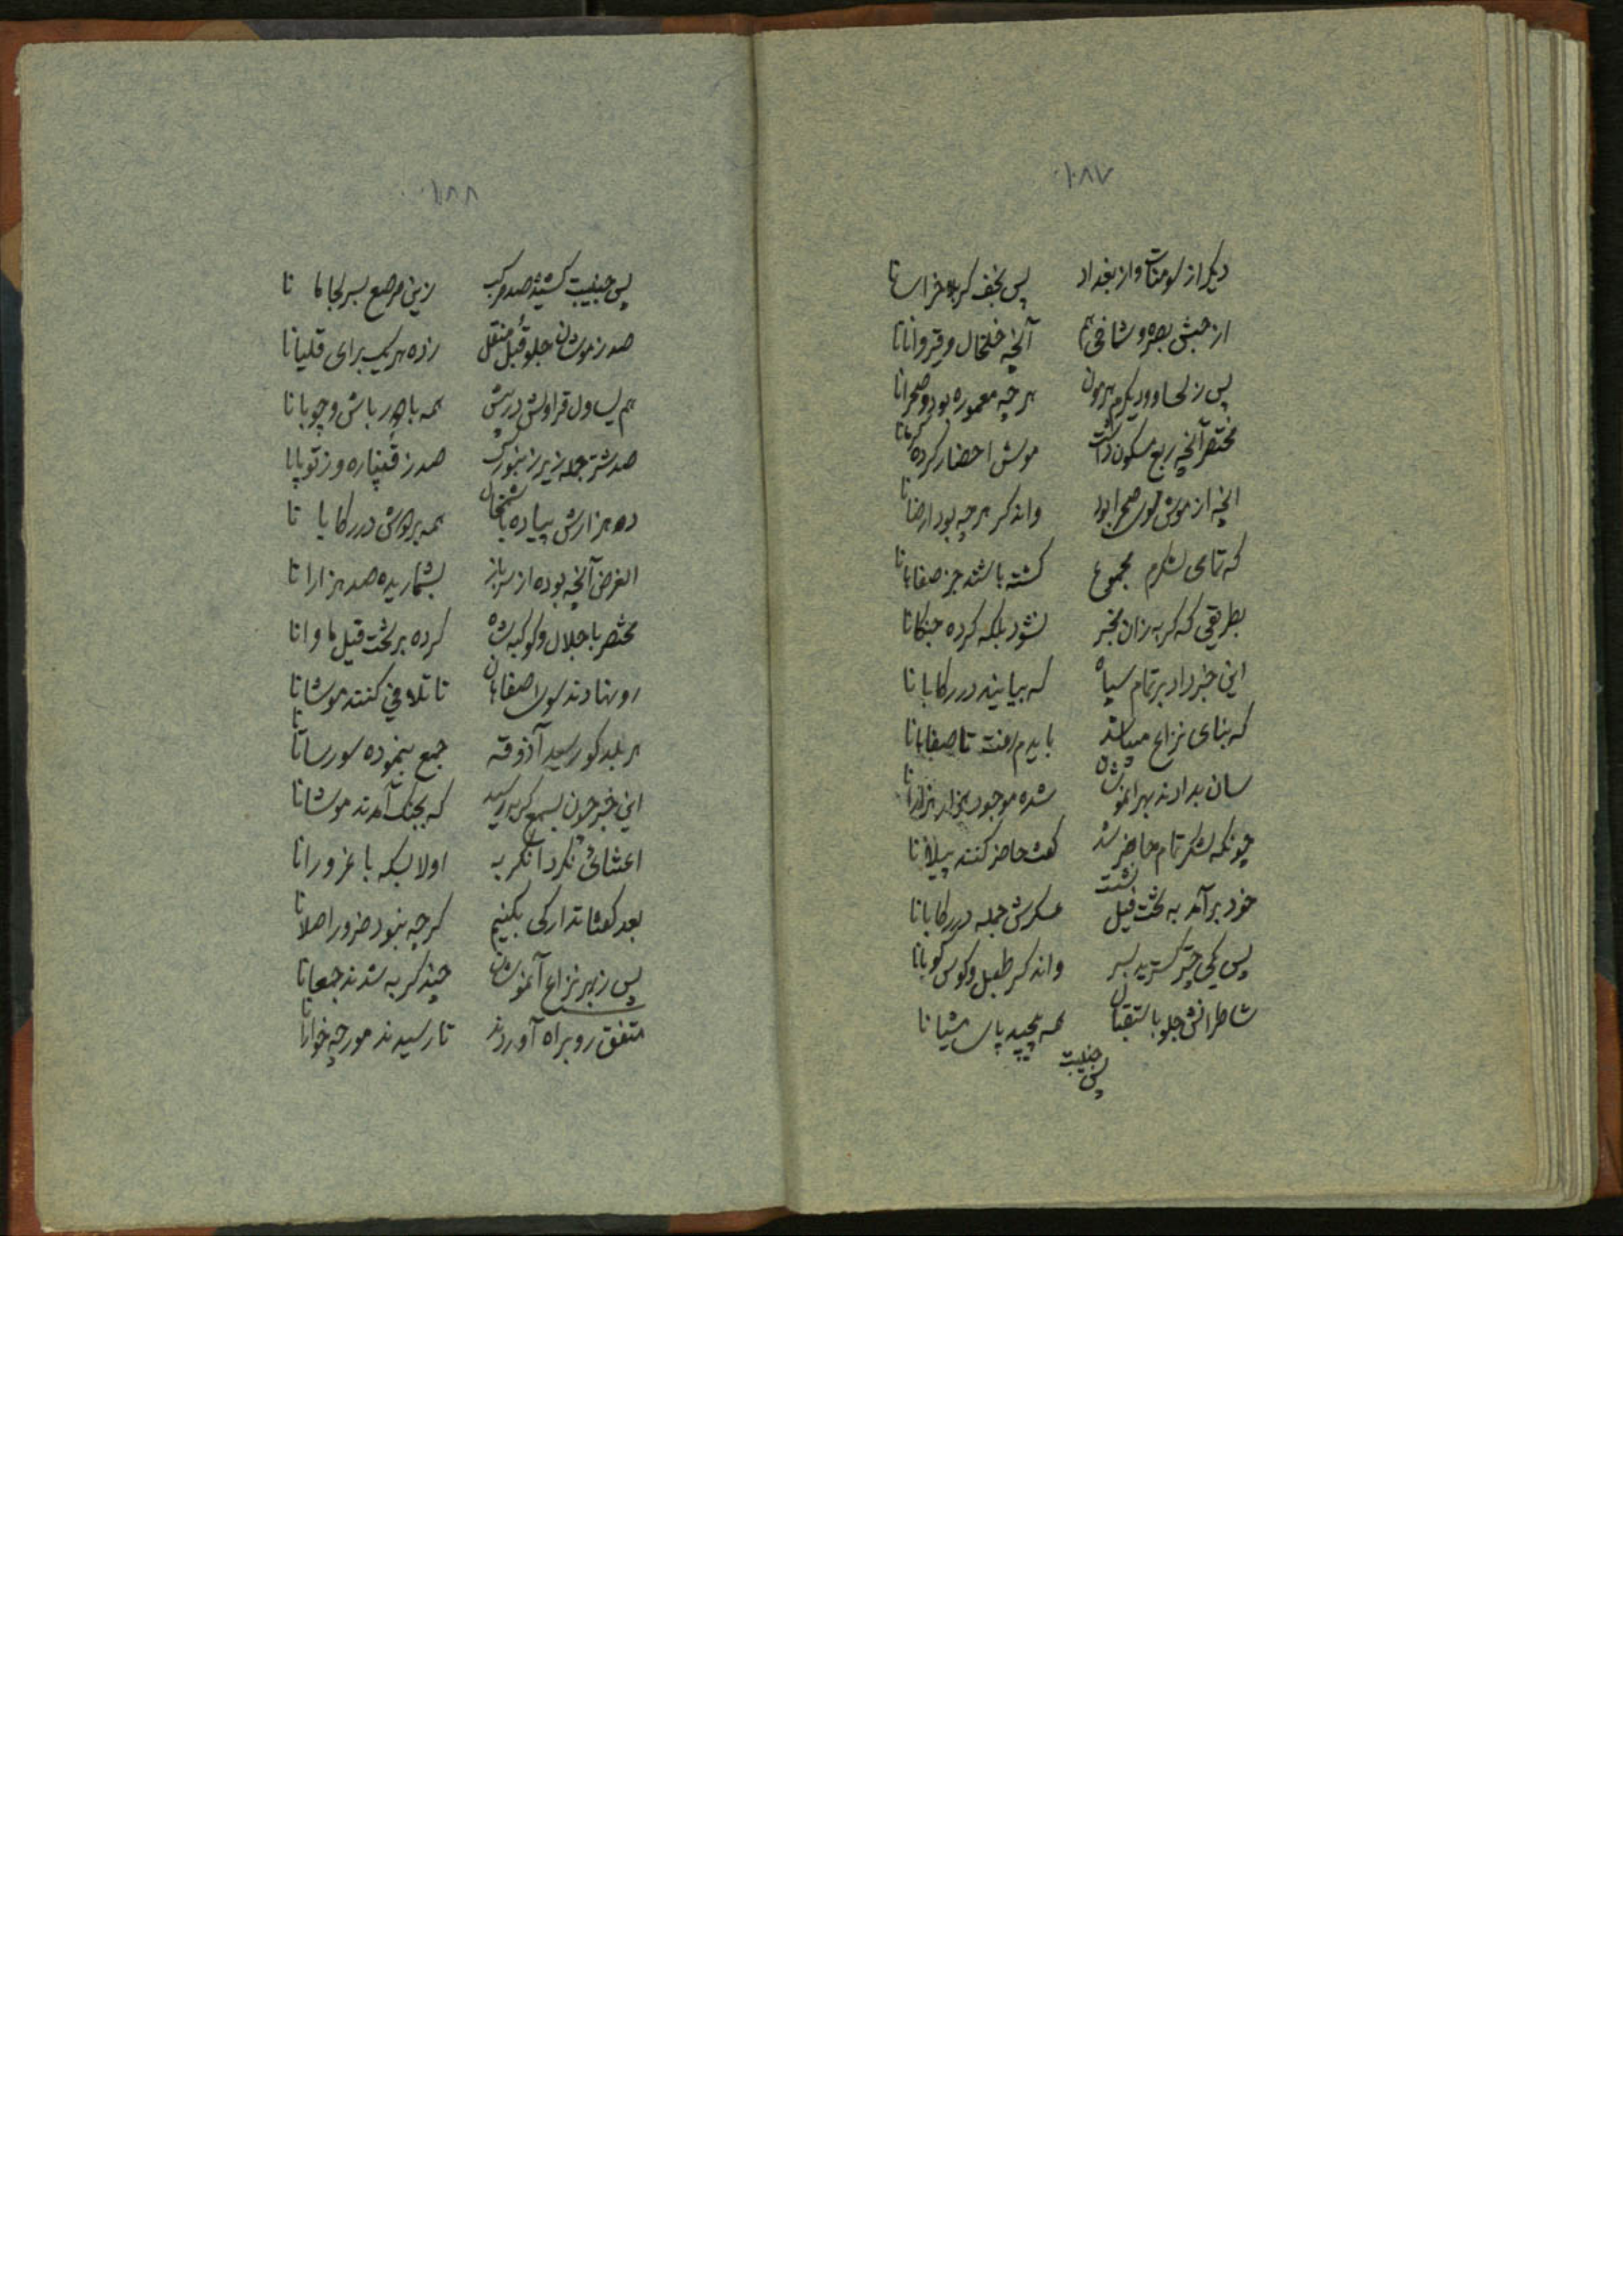 ۱۰۸۷
دیگر از سومنات و از بغداد پس نجف کربلا خراسانا
از حبش بصره و شماخی هم آنچه خلخال و قیروانانا
پس ز لحسا و دیگرم هرچه معموره بود و صحرانا
مختصر آنچه ربع مسکون داشت موش احضار کرده
انچه از موش صحرا بود واندگر هرچه بود ارضانا
که تمامی لشکرم مجموع کشته باشند جز صفاهانا
بطریقی که گربه زان مخبر نشود بلکه کرده جنکانا
این خبر داد بر تمام سپاه که بیایند در رکابانا
که بنای نزاع میباشد بایدم رفت تا صفاهانا
سان بدادند بهر انموشان شده موجود هزار هزارانا
چونکه لشکر تمام حاضر شد گفت حاضر کنند پیلانا
خود برآمد به تخت فیل نشست عسکرش جمله در رکابانا
پس یکی چتر گسترید بسر واندگر طبل و کوس کوبانا
شاطرانش جلو با استقبال همه پیچید پای مشیانا
پس جنیبت
۱۰۸۸
پس جنیبت کشیده صد مرکب زین مرصع بسر لجاما نا
صد ز موشان جلو قبل منقل زده هر یک برای قلیانا
هم یساول قراولش در پیش همه با دورباش و چوبانا
صد شتر جمله زیر زنبورک صد ز قنپاره و ز توپانا
ده هزارش پیاده با شمخال همه بر دوش در رکابا نا
الغرض آنچه بوده از سرباز بشماریده صد هزارانا
مختصر با جلال و کوکبه شاه کرده بر تخت فیل ماوانا
رو نهادند سوی اصفاهان تا تلافی کنند موشانا
هر بلد کو رسید آذوقه جمع بنموده سورساتانا
این خبر چون بسمع گربه رسید که بجنگ آمدند موشانا
اعتنائی نکرد آن گربه اولا بسکه با غرورانا
بعد گفتا تدارکی بکنیم گرچه نبود ضرور اصلانا
پس ز بهر نزاع آنموشان چند گربه شدند جمعانا
متفق رو براه آوردند تا رسیدند مورچه خوارانا